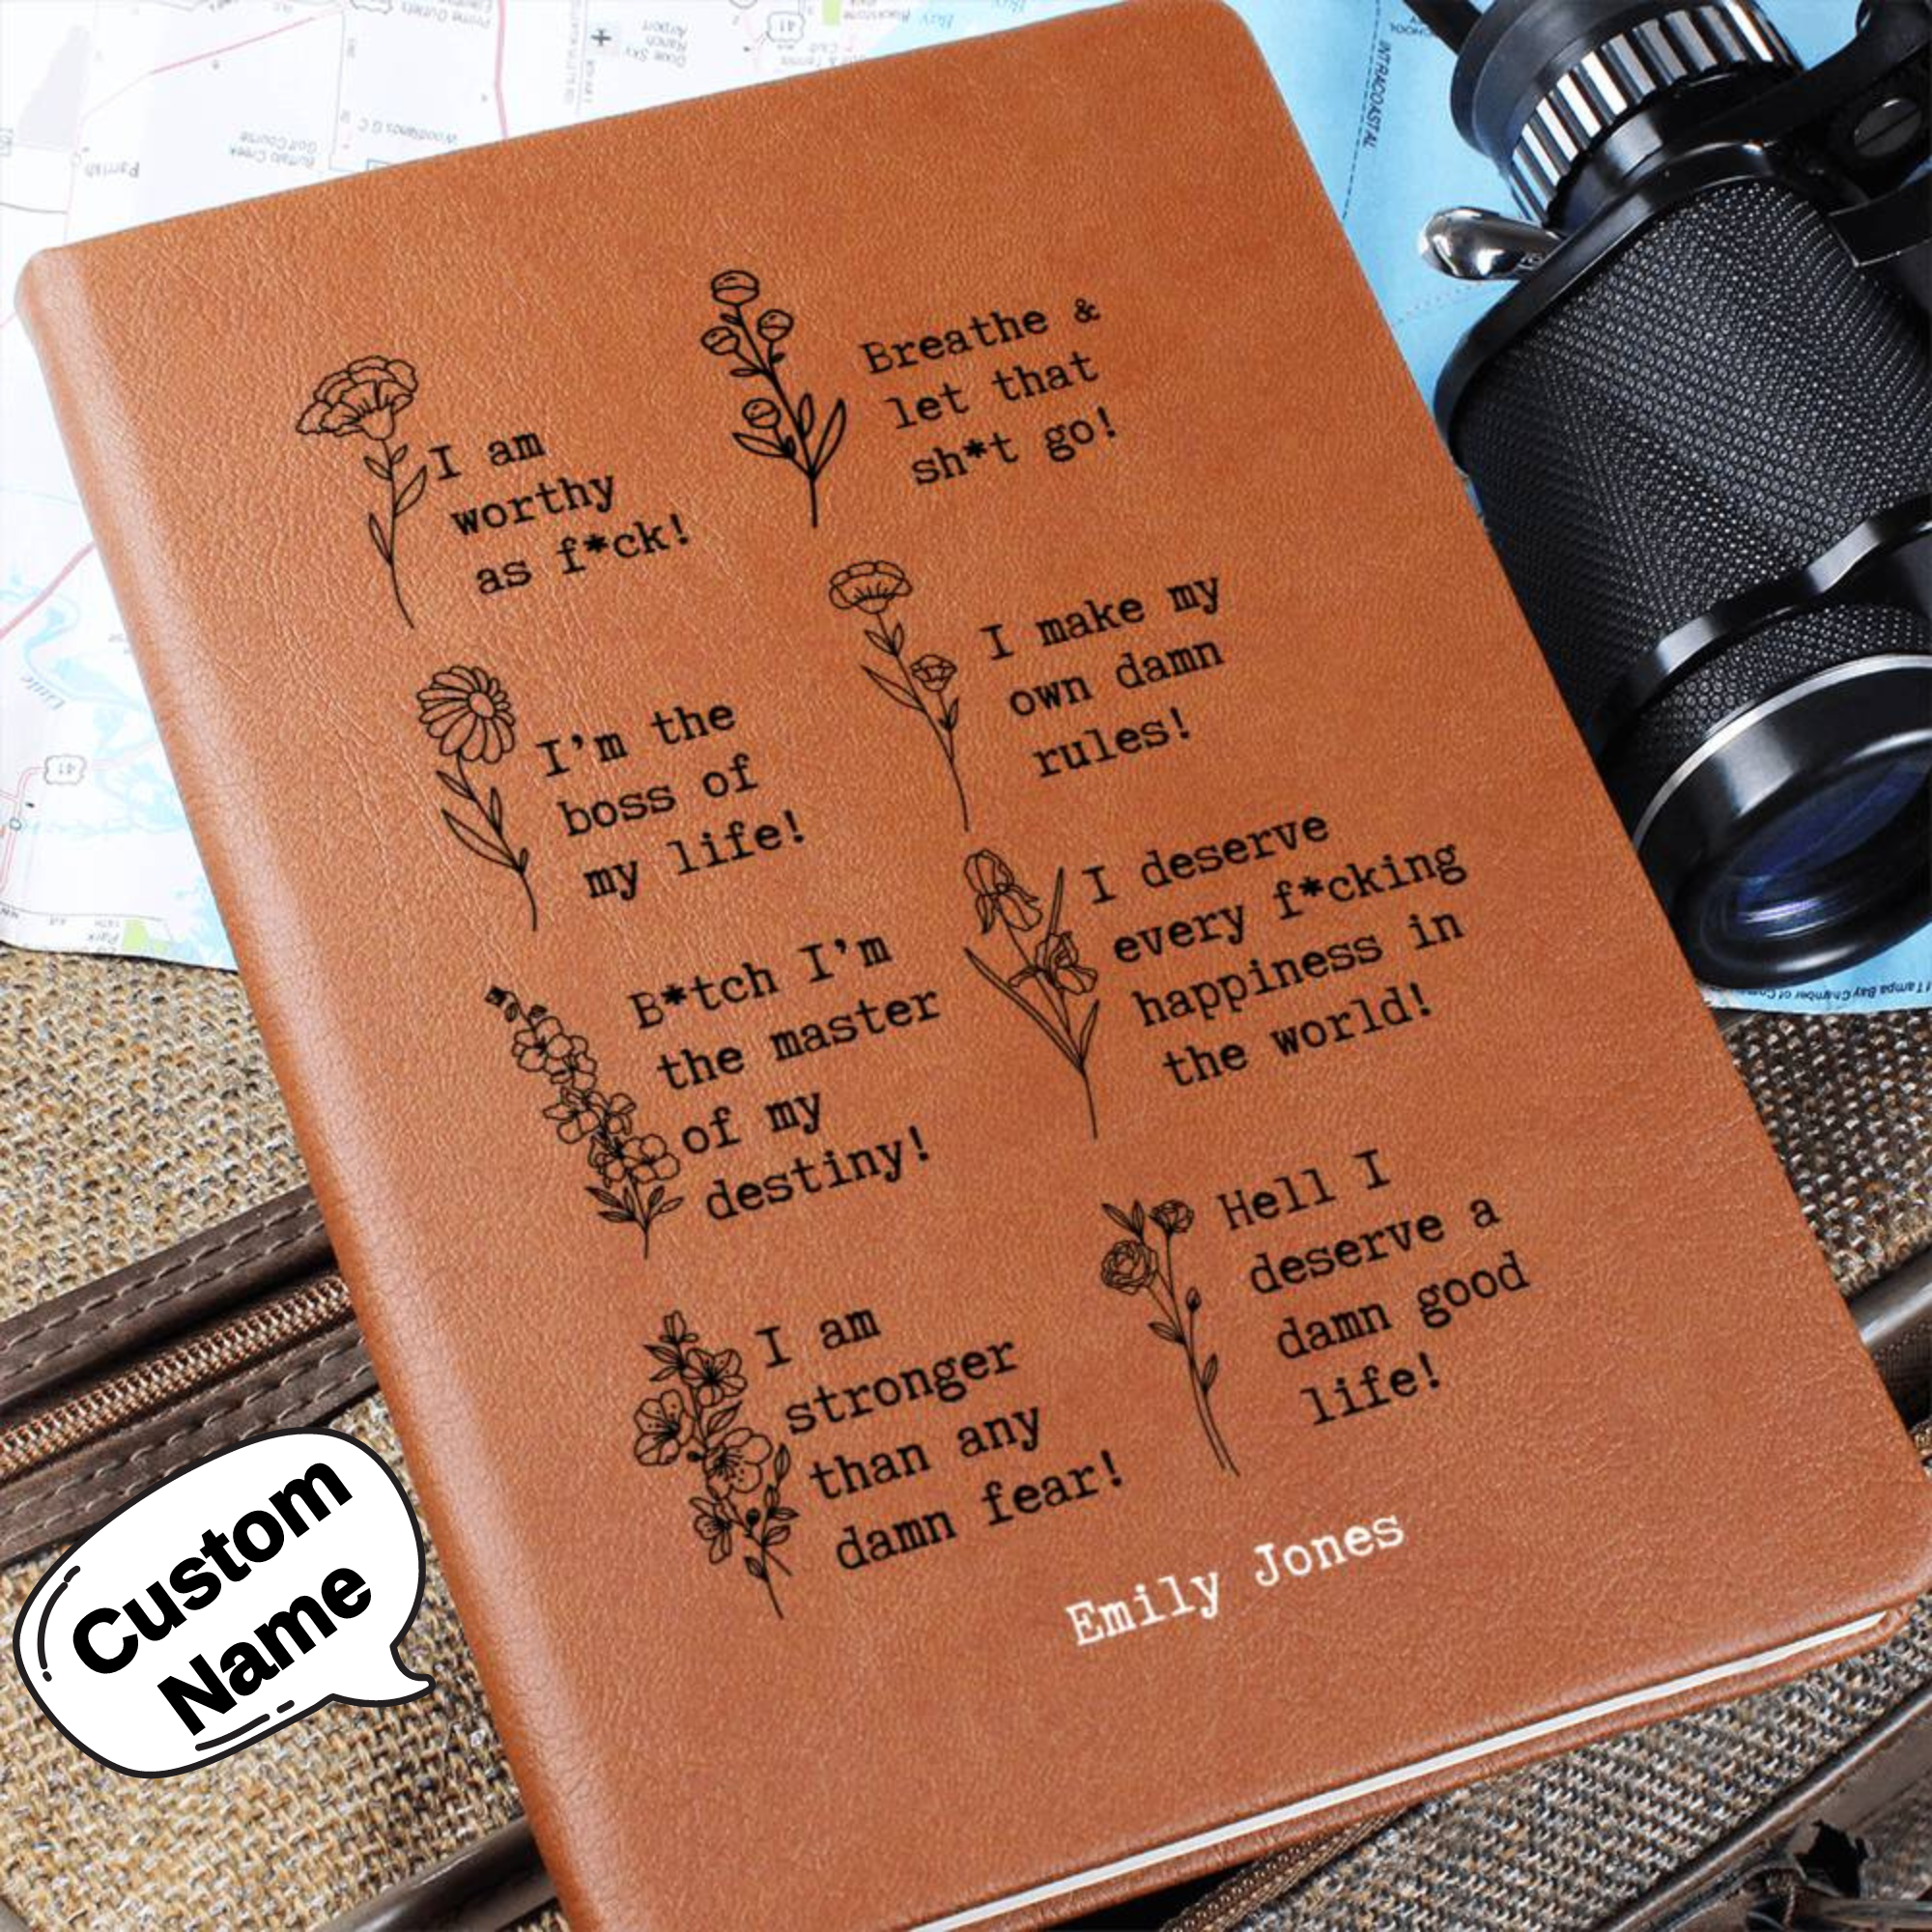 I am
worthy
as f*ck!
Breathe &
let that
sh*t go!
I'm the
boss of
my life!
I make my
own damn
rules!
B*tch I'm
the master
of my
destiny!
I deserve
every f*cking
happiness in
the world!
I am
stronger
than any
damn fear!
Hell I
deserve a
damn good
life!
Emily Jones
Custom
Name
Parrish
Buffalo Creek
Golf Course
41
41
INTRACOASTAL